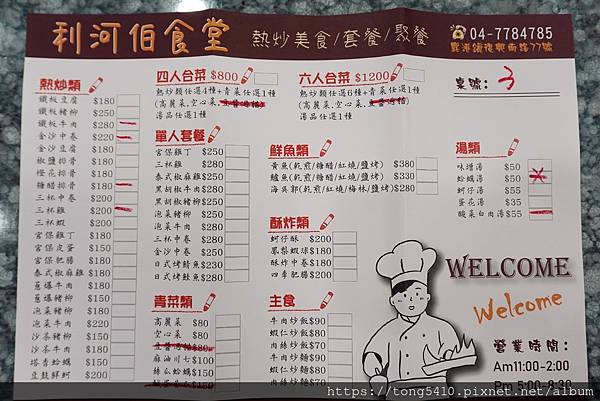 利河伯食堂
熱炒美食/套餐/聚餐
04-7784785
鹿港鎮復興南路77號
桌號: 3
熱炒類
鐵板豆腐 $180
鐵板豬柳 $250
鐵板牛肉 $280
金沙中卷 $220
金沙豆腐 $180
椒鹽排骨 $180
橙花排骨 $180
糖醋排骨 $180
三杯中卷 $200
三杯雞 $200
三杯蝦 $200
宮保雞丁 $180
宮保皮蛋 $150
宮保肥腸 $180
泰式椒麻雞 $180
蔥爆牛肉 $180
蔥爆豬柳 $150
泡菜豬柳 $180
泡菜牛肉 $220
沙茶豬柳 $150
沙茶牛肉 $180
塔香蛤蠣 $180
豆鼓鮮蚵 $200
四人合菜 $800
熱炒類任選4種+青菜任選1種
(高麗菜.空心菜.豆醬過貓)
湯品任選1種
六人合菜 $1200
熱炒類任選6種+青菜任選1種
(高麗菜.空心菜.豆醬過貓)
湯品任選1種
單人套餐
宮保雞丁 $250
三杯雞 $280
泰式椒麻雞 $250
黑胡椒牛肉 $280
黑胡椒豬柳 $250
泡菜豬柳 $250
泡菜牛肉 $280
三杯中卷 $280
金沙中卷 $250
日式烤鯖魚 $230
日式烤鮭魚 $280
鮮魚類
黃魚(乾煎/糖醋/紅燒/鹽烤) $380
鱸魚(乾煎/糖醋/紅燒/鹽烤) $330
海吳郭(乾煎/紅燒/梅林/鹽烤) $280
湯類
味增湯 $50
蛤蠣湯 $50
蚵仔湯 $55
蛋花湯 $35
酸菜白肉湯 $55
酥炸類
蚵仔酥 $200
鳳梨蝦球 $180
酥炸中卷 $180
四季肥腸 $200
青菜類
高麗菜 $80
空心菜 $80
豆醬過貓 $80
麻油川七 $100
絲瓜蛤蠣 $150
主食
牛肉炒飯 $90
蝦仁炒飯 $80
肉絲炒飯 $70
牛肉炒麵 $90
蝦仁炒麵 $80
肉絲炒麵 $70
WELCOME
Welcome
營業時間:
Am11:00-2:00
Pm 5:00-8:30
https://tong5410.pixnet.net/album